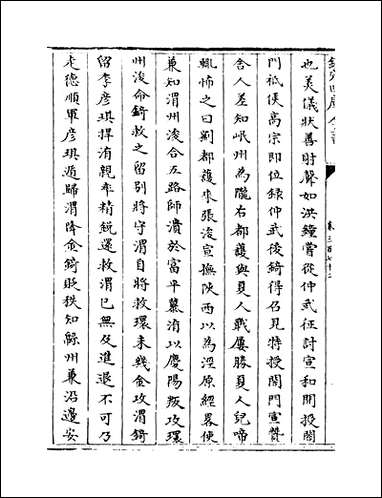 欽定四庫全書
卷三百七十二
也美儀狀善射聲如洪鐘嘗從仲武征討宣和間授閤
門祗候高宗即位録仲武後錡得召見特授閤門宣贊
舍人差知岷州為隴右都護與夏人戰屢勝夏人兒啼
輒怖之曰劉都護來張浚宣撫陝西以為涇原經畧使
兼知渭州浚合五路師潰於富平慕洧以慶陽叛攻環
州浚命錡救之留别將守渭自將救環未幾金攻渭錡
留李彦琪捍洧親率精鋭還救渭已無及進退不可乃
走徳順軍彦琪遁歸渭降金錡貶秩知綿州兼沿邊安